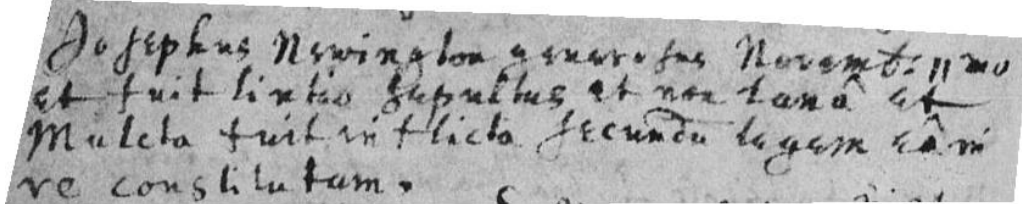 Josephus Newington generosus Novemb: 11mo
et fuit linteo sepultus et non lanâ et
Mulcta fuit inflicta secundū legem eâ in
re constitutam.